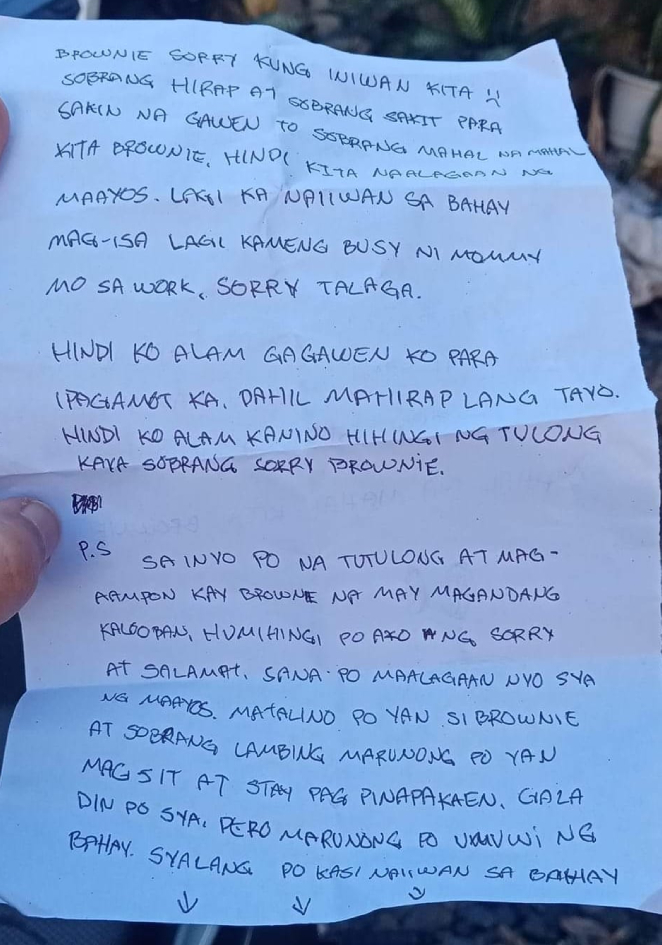 BROWNIE SORRY KUNG INIWAN KITA :(
SOBRANG HIRAP AT SOBRANG SAKIT PARA
SAKIN NA GAWEN TO SOBRANG MAHAL NA MAHAL
KITA BROWNIE. HINDI KITA NAALAGAAN NG
MAAYOS. LAGI KA NAIIWAN SA BAHAY
MAG-ISA LAGIL KAMENG BUSY NI MOMMY
MO SA WORK. SORRY TALAGA.
HINDI KO ALAM GAGAWEN KO PARA
IPAGAMOT KA. DAHIL MAHIRAP LANG TAYO.
HINDI KO ALAM KANINO HIHINGI NG TULONG
KAYA SOBRANG SORRY BROWNIE.
P.S SA INYO PO NA TUTULONG AT MAG-
AAMPON KAY BROWNIE NA MAY MAGANDANG
KALOOBAN, HUMIHINGI PO AKO NG SORRY
AT SALAMAT. SANA PO MAALAGAAN NYO SYA
NG MAAYOS. MATALINO PO YAN SI BROWNIE
AT SOBRANG LAMBING MARUNONG PO YAN
MAG SIT AT STAY PAG PINAPAKAEN. GALA
DIN PO SYA. PERO MARUNONG PO UMUWI NG
BAHAY. SYALANG PO KASI NAIIWAN SA BAHAY